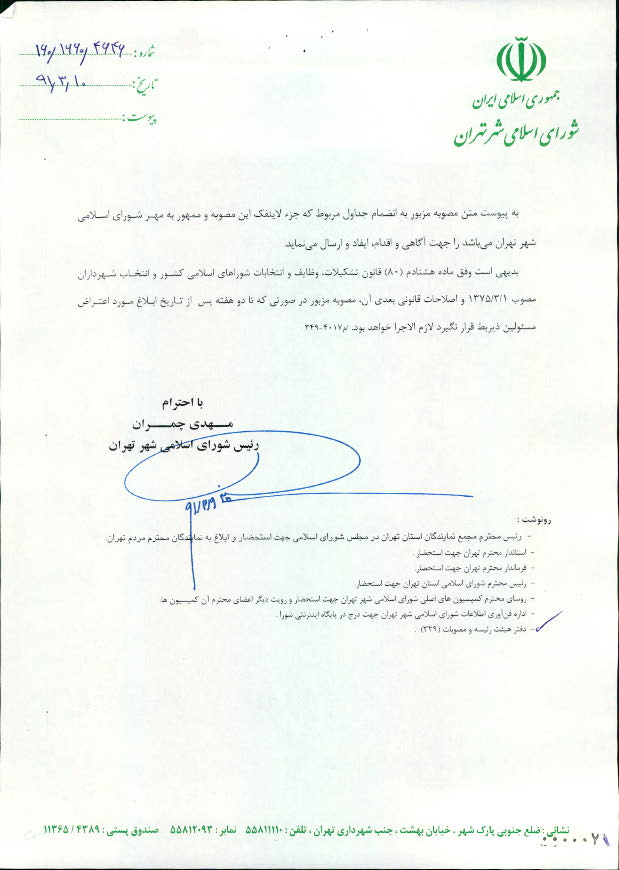 جمهوری اسلامی ایران
شورای اسلامی شهر تهران
شماره: ۱۶۰/۱۶۶۰/۴۶۴۶
تاریخ: ۹۱٫۳٫۱۰
پیوست:
به پیوست متن مصوبه مزبور به انضمام جداول مربوط که جزء لاینفک این مصوبه و ممهور به مهر شورای اسلامی
شهر تهران می‌باشد را جهت آگاهی و اقدام، ایفاد و ارسال می‌نماید.
بدیهی است وفق ماده هشتادم (۸۰) قانون تشکیلات، وظایف و انتخابات شوراهای اسلامی کشور و انتخاب شهرداران
مصوب ۱۳۷۵/۳/۱ و اصلاحات قانونی بعدی آن، مصوبه مزبور در صورتی که تا دو هفته پس از تاریخ ابلاغ مورد اعتراض
مسئولین ذیربط قرار نگیرد لازم الاجرا خواهد بود. /م۴۰۱۷-۳۴۹
با احترام
مهدی چمران
رئیس شورای اسلامی شهر تهران
رونوشت :
- رئیس محترم مجمع نمایندگان استان تهران در مجلس شورای اسلامی جهت استحضار و ابلاغ به نمایندگان محترم مردم تهران.
- استاندار محترم تهران جهت استحضار.
- فرماندار محترم تهران جهت استحضار.
- رئیس محترم شورای اسلامی استان تهران جهت استحضار.
- روسای محترم کمیسیون های اصلی شورای اسلامی شهر تهران جهت استحضار و رویت دیگر اعضای محترم آن کمیسیون ها.
- اداره فن‌آوری اطلاعات شورای اسلامی شهر تهران جهت درج در پایگاه اینترنتی شورا .
- دفتر هیئت رئیسه و مصوبات (۳۴۹) .
نشانی : ضلع جنوبی پارک شهر ، خیابان بهشت ، جنب شهرداری تهران ، تلفن : ۵۵۸۱۱۱۱۰ نمابر : ۵۵۸۱۲۰۹۳ صندوق پستی : ۴۳۸۹ / ۱۱۳۶۵